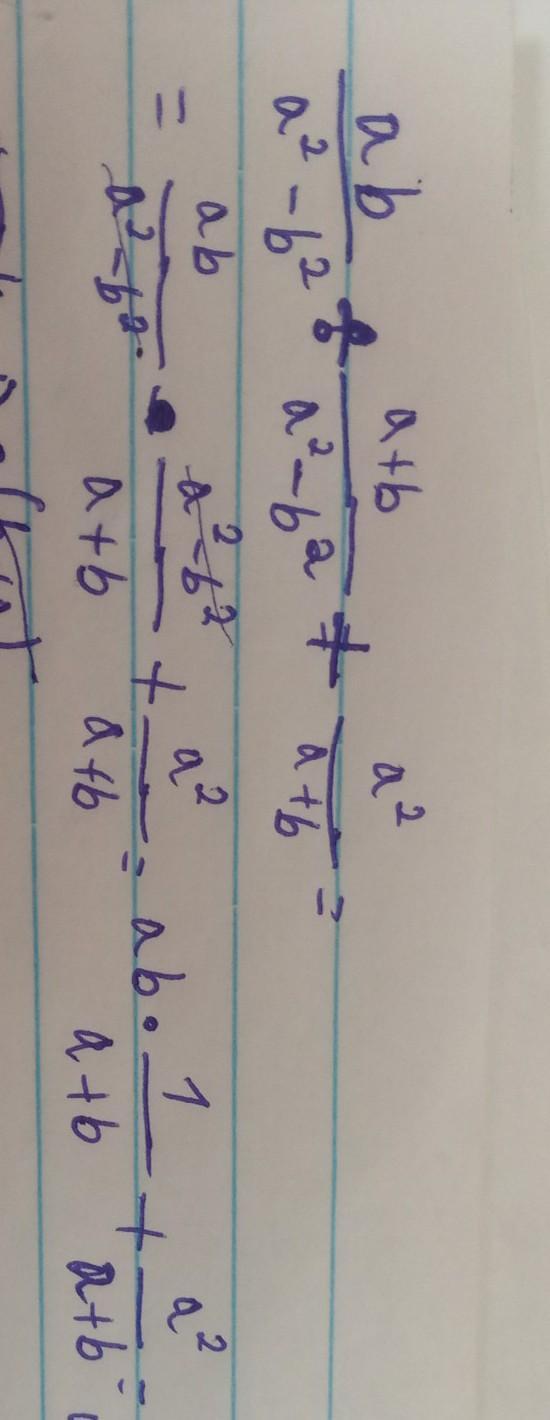 ab/(a² - b²) ÷ (a+b)/(a² - b²) + a²/(a+b) =
= ab/(a² - b²) · (a² - b²)/(a+b) + a²/(a+b) = ab · 1/(a+b) + a²/(a+b) =